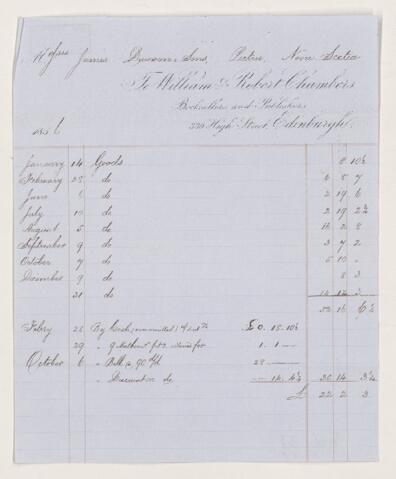 Messrs James Dawson & Sons, Pictou, Nova Scotia
To William & Robert Chambers
Booksellers and Publishers
339 High Street, Edinburgh.
1856
January 14 Goods 8 10½
February 23 do 6 8 7
June 6 do 2 19 6
July 10 do 2 19 2½
August 5 do 2 8
September 9 do 3 7 2
October 7 do 5 10
December 9 do 8 3
31 do
52 16 6½
Febry 28 By Cash £0. 18. 10½
29 1. 1 —
October 6 " Bill @ 90 d/d 28 —
" Discount on do — 14. 4½ 30 14 3½
£ 22 2 3